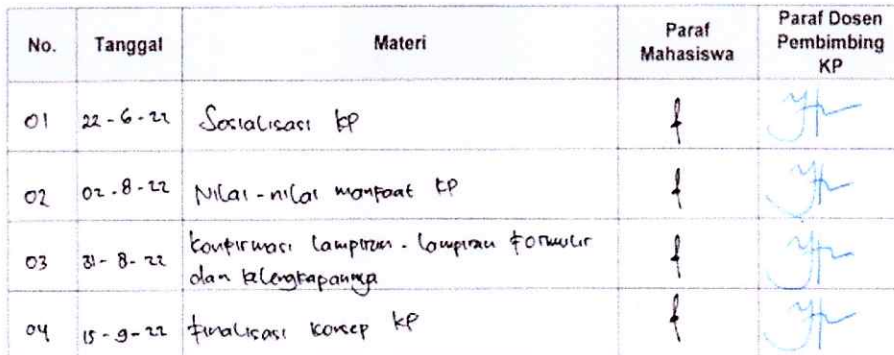 No. Tanggal Materi Paraf Mahasiswa Paraf Dosen Pembimbing KP
01 22-6-22 Sosialisasi KP
02 02-8-22 Nilai-nilai manfaat KP
03 31-8-22 Konfirmasi lampiran-lampiran formulir
dan kelengkapannya
04 15-9-22 finalisasi konsep KP